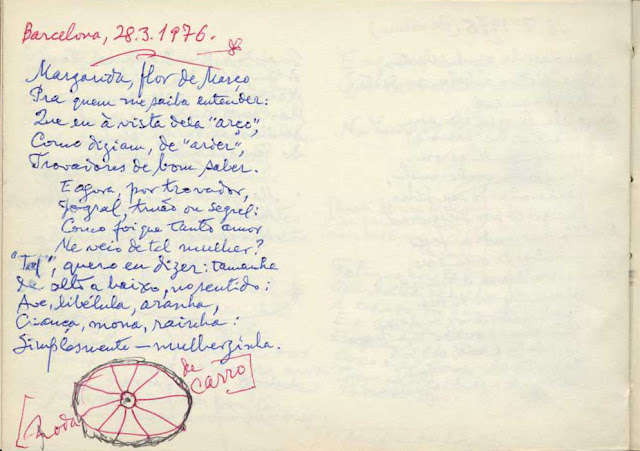 Barcelona, 28.3.1976.
Margarida, flor de Março
Pra quem me saiba entender:
Que eu à vista dela "arço",
Como diziam, de "arder",
Trovadores de bom saber.
E agora, por trovador,
Jogral, truão ou segrel:
Como foi que tanto amor
Me veio de tal mulher?
"Tal", quero eu dizer: tamanha
de alto a baixo, no sentido:
Ave, libélula, aranha,
Criança, mona, rainha:
Simplesmente — mulherzinha.
[Roda de carro]